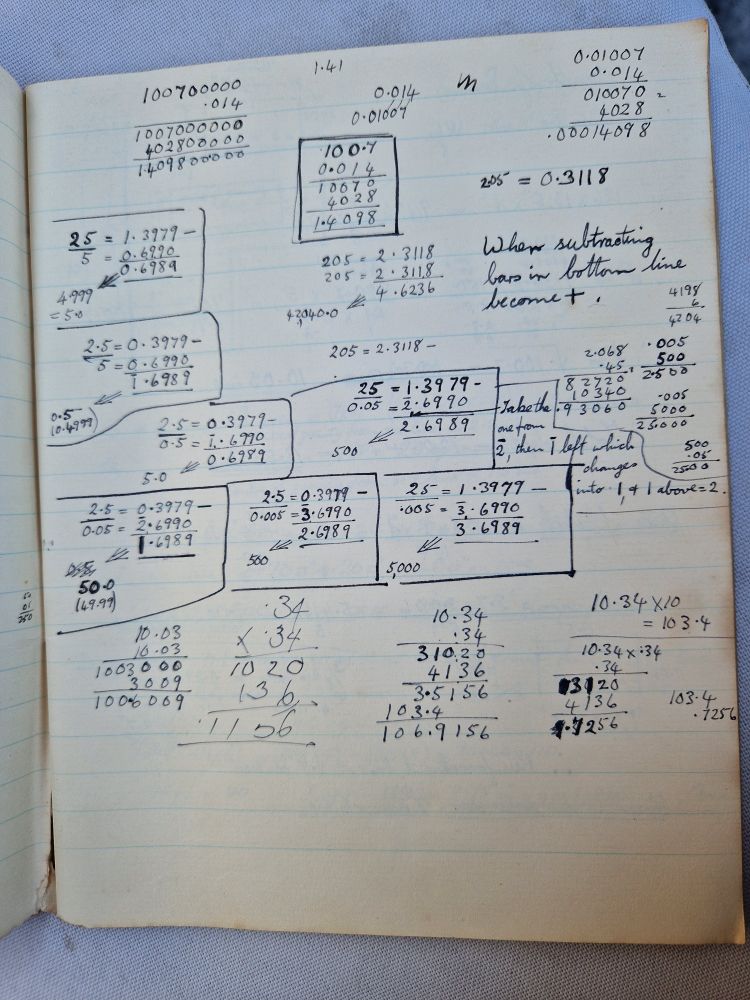 100700000
.014
1007000000
402800000
1.409800000
1.41
0.014
0.01007
100.7
0.014
10070
4028
1.4098
m
0.01007
0.014
010070
4028
.00014098
2.05 = 0.3118
25 = 1.3979 –
5 = 0.6990
0.6989
4.999
= 5.0
205 = 2.3118
205 = 2.3118
4.6236
42040.0
When subtracting
bars in bottom line
become + .
4198
6
4204
2.5 = 0.3979 –
5 = 0.6990
1̄.6989
0.5
(0.4999)
205 = 2.3118 –
2.068
.45
82720
10340
.93060
.005
500
2.500
.005
5000
25000
500
.05
2500
2.5 = 0.3979 –
0.5 = 1̄.6990
0.6989
5.0
25 = 1.3979 –
0.05 = 2̄.6990
2.6989
500
Take the
one from
2̄, then 1̄ left which
changes
into 1, & 1 above = 2.
2.5 = 0.3979 –
0.05 = 2̄.6990
1.6989
50.0
(49.99)
2.5 = 0.3979 –
0.005 = 3̄.6990
2.6989
500
25 = 1.3979 –
.005 = 3̄.6990
3.6989
5,000
10.03
10.03
1003000
3009
100.6009
.34
× .34
1020
136
.1156
10.34
.34
31020
4136
3.5156
103.4
106.9156
10.34 × 10
= 103.4
10.34 × .34
.34
13120
4136
1.7256
103.4
.7256